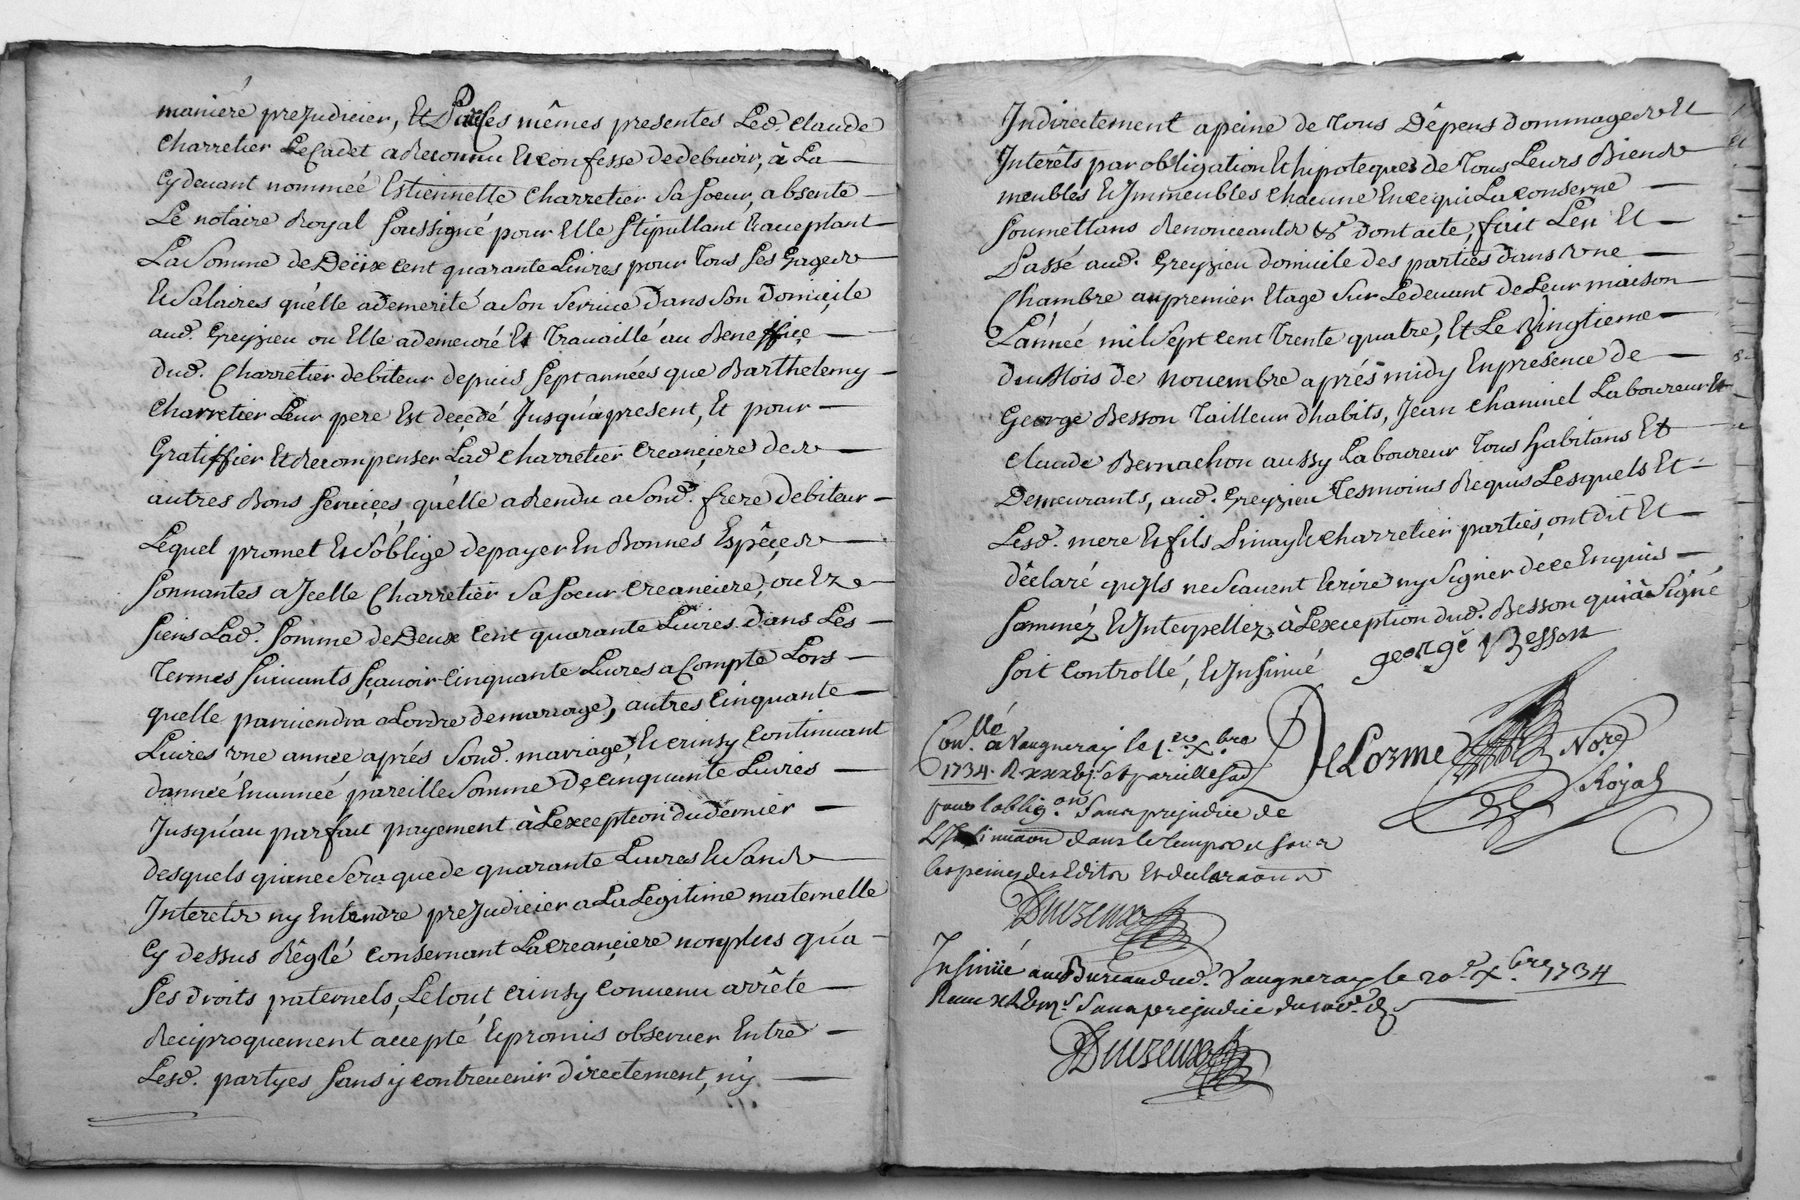 maniere preJudicier, Et Par ces mêmes presentes Led. Claude
Charretier Le Cadet a Reconnu Et confessé dedebvoir, à La
Cydevant nommée Estiennette Charretier Sa Soeur, absente
Le notaire Royal Soussigné pour Elle Stipullant Et acceptant
La Somme de Deüx cent quarante Livres pour Tous Ses Gages
Et Salaires qu'elle a demerité a Son Service Dans Son Domicile
aud. Greyzieu ou Elle a demeuré Et Travaillé au Beneffice
dud. Charretier debiteur depuis Sept années que Barthelemy
Charretier Leur pere Est decedé Jusqu'a present, Et pour
Gratiffier Et Recompenser Lad Charretier Creanciere des
autres Bons Services qu'elle a Rendu a Sond. frere debiteur
Lequel promet Et S'oblige de payer En Bonnes Espêces
Sonnantes a Jcelle Charretier Sa Soeur Creanciere, ou Ez
Siens Lad. Somme de Deux Cent quarante Livres Dans Les
Termes Suivants Sçavoir Cinquante Livres a Compte Lors
quelle parviendra a Lordre de mariage, autres Cinquante
Livres une année aprés Sond. mariage, Et ainsy Continuant
dannée En année pareille Somme De Cinquante Livres
Jusqu'au parfait payement à Lexception du Dernier
desquels qui ne Sera que de quarante Livres Et Sans
Interets ny Entendre preJudicier a La Legitime maternelle
Cy dessus Réglé Consernant La Creanciere non plus qu'a
Ses droits paternels, Le tout ainsy Convenu arrêté
Reciproquement accepté Et promis observer Entre
Lesd. partyes Sans y contrevenir directement, ny
Jndirectement a peine de Tous Dépens dommages Et
Interêts par obligation Et hipoteques de Tous Leurs Biens
meubles Et Jmmeubles Chacune En ce qui La Conserne
Soumettans Renonceants &ª Dont acte, fait Leu Et
Passé aud. Greyzieu domicile des parties Dans une
Chambre au premier Etage Sur Le devant de Leur maison
L'année mil Sept cent Trente quatre, Et Le Vingtieme
du Mois de novembre aprés midy En presence de
George Besson Tailleur d'habits, Jean Chaminel Laboureur Et
Claude Bernachon aussy Laboureur Tous habitans Et
Demeurants, aud. Greyzieu Tesmoins Requis Lesquels Et
Lesd. mere Et fils Pinay Et Charretier parties, ont dit Et
déclaré qu'jls ne Scavent Ecrire ny Signer de ce Enquis
Sommez Et Interpellez, à Lexception dud. Besson qui à Signé
Soit Controllé, Et Jnsinué
george Besson
DeLorme Nore
Royal
Conllé a Vaugneray le 1er Xbre
1734. R pareille Sad
pour l'obligon Sans prejudice de
L'Jnsinuaon dans le temps Et Sous
les peines des Edits Et declaraons
Jnsinüé au Bureau dud. Vaugneray le 20e Xbre 1734
Sans prejudice